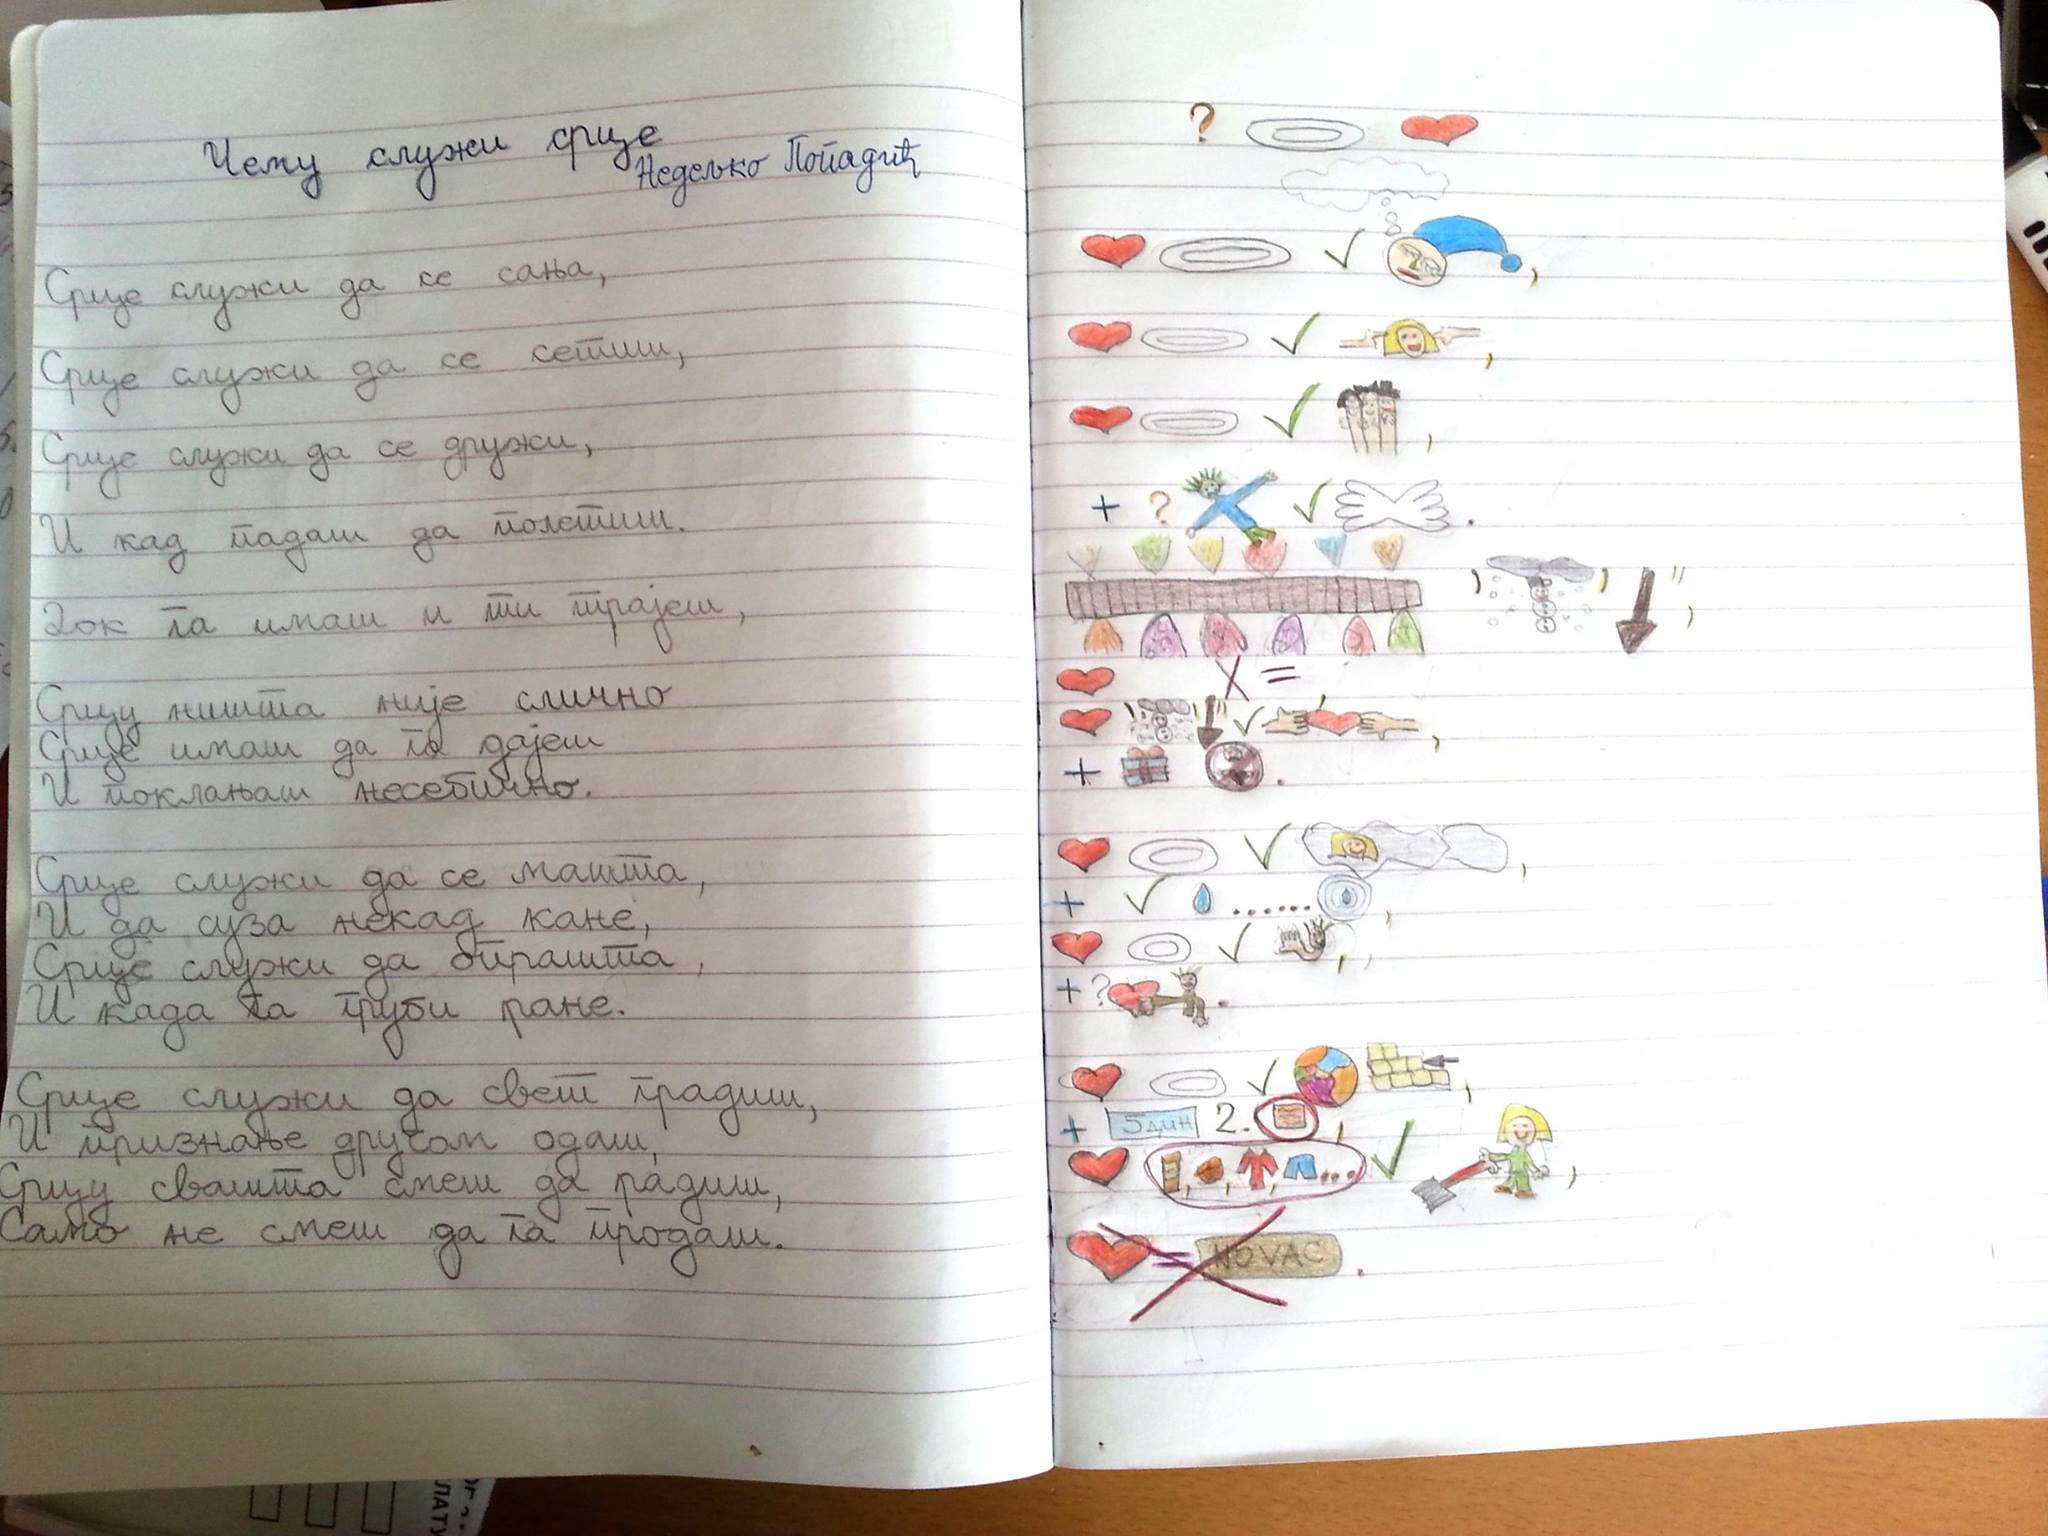 Чему служи срце
Недељко Попадић
Срце служи да се сања,
Срце служи да се сетиш,
Срце служи да се дружи,
И кад падаш да полетиш.
Док га имаш и ти трајеш,
Срцу ништа није слично
Срце имаш да га дајеш
И поклањаш несебично.
Срце служи да се машта,
И да суза некад кане,
Срце служи да опрашта,
И када га груби ране.
Срце служи да свет градиш,
И признање другом одаш,
Срцу свашта смеш да радиш,
Само не смеш да га продаш.
?
+ ?
, " ,
=
, "
+
+
+ ?
+ 5дин 2.
NOVAC